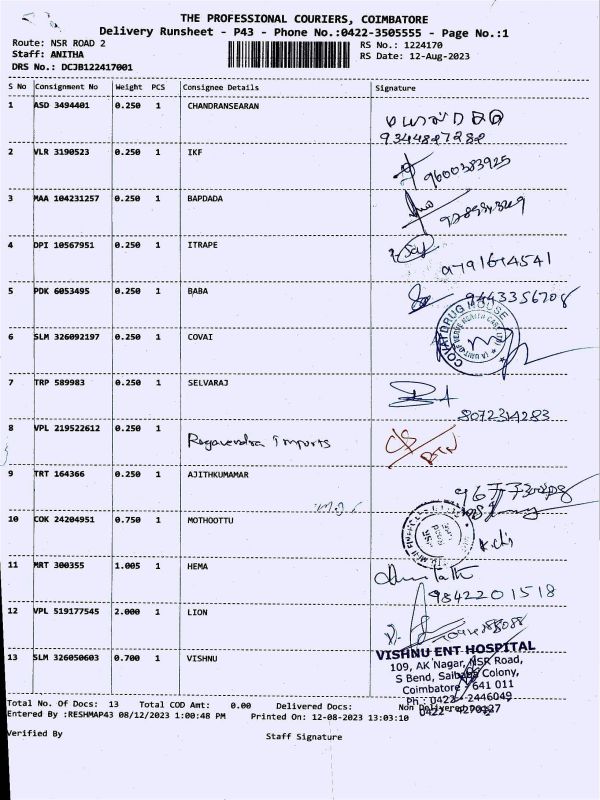 THE PROFESSIONAL COURIERS, COIMBATORE
Delivery Runsheet - P43 - Phone No.:0422-3505555 - Page No.:1
Route: NSR ROAD 2 RS No.: 1224170
Staff: ANITHA RS Date: 12-Aug-2023
DRS No.: DCJB122417001
S No Consignment No Weight PCS Consignee Details Signature
1 ASD 3494401 0.250 1 CHANDRANSEARAN
9344827282
2 VLR 3190523 0.250 1 IKF
9600383925
3 MAA 104231257 0.250 1 BAPDADA
4 DPI 10567951 0.250 1 ITRAPE
9791614541
5 PDK 6053495 0.250 1 BABA
9443356708
6 SLM 326092197 0.250 1 COVAI
COVAI DRUG HOUSE
7 TRP 589983 0.250 1 SELVARAJ
8072314283
8 VPL 219522612 0.250 1 Ragavendra Imports
9 TRT 164366 0.250 1 AJITHKUMAMAR
10 COK 24204951 0.750 1 MOTHOOTTU
11 MRT 300355 1.005 1 HEMA
9842201518
12 VPL 519177545 2.000 1 LION
13 SLM 326050603 0.700 1 VISHNU
VISHNU ENT HOSPITAL
109, AK Nagar, NSR Road,
S Bend, Saibaba Colony,
Coimbatore - 641 011
Ph : 0422 - 2446049
0422 - 4270127
Total No. Of Docs: 13 Total COD Amt: 0.00 Delivered Docs: Non Delivered Docs:
Entered By :RESHMAP43 08/12/2023 1:00:48 PM Printed On: 12-08-2023 13:03:10
Verified By Staff Signature